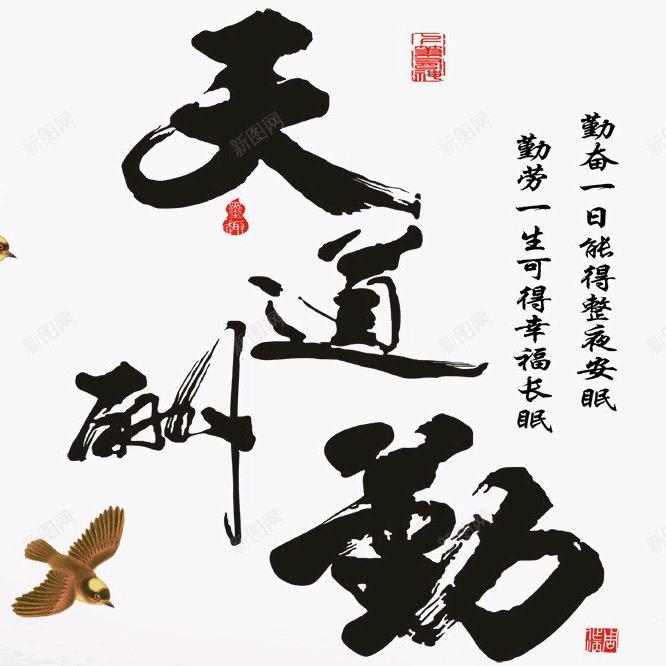 天道酬勤
勤奋一日能得整夜安眠
勤劳一生可得幸福长眠
墨趣
新图网